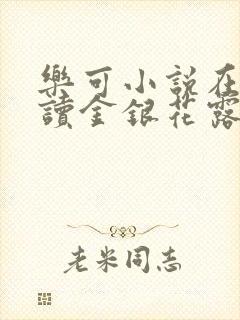 樂可小說在
讀金銀花露
老米同志